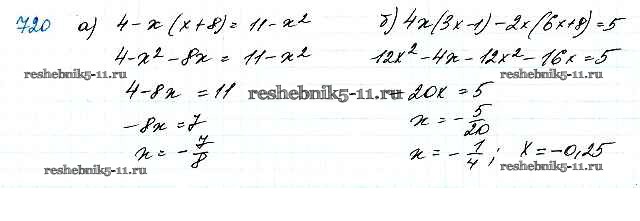 720 а) 4-x(x+8) = 11-x² б) 4x(3x-1)-2x(6x+8)=5
4-x²-8x = 11-x² 12x²-4x-12x²-16x=5
reshebnik5-11.ru reshebnik5-11.ru
4-8x = 11 reshebnik5-11.ru -20x = 5
-8x = 7 x = -5/20
x = -7/8 x = -1/4; x=-0,25
reshebnik5-11.ru reshebnik5-11.ru